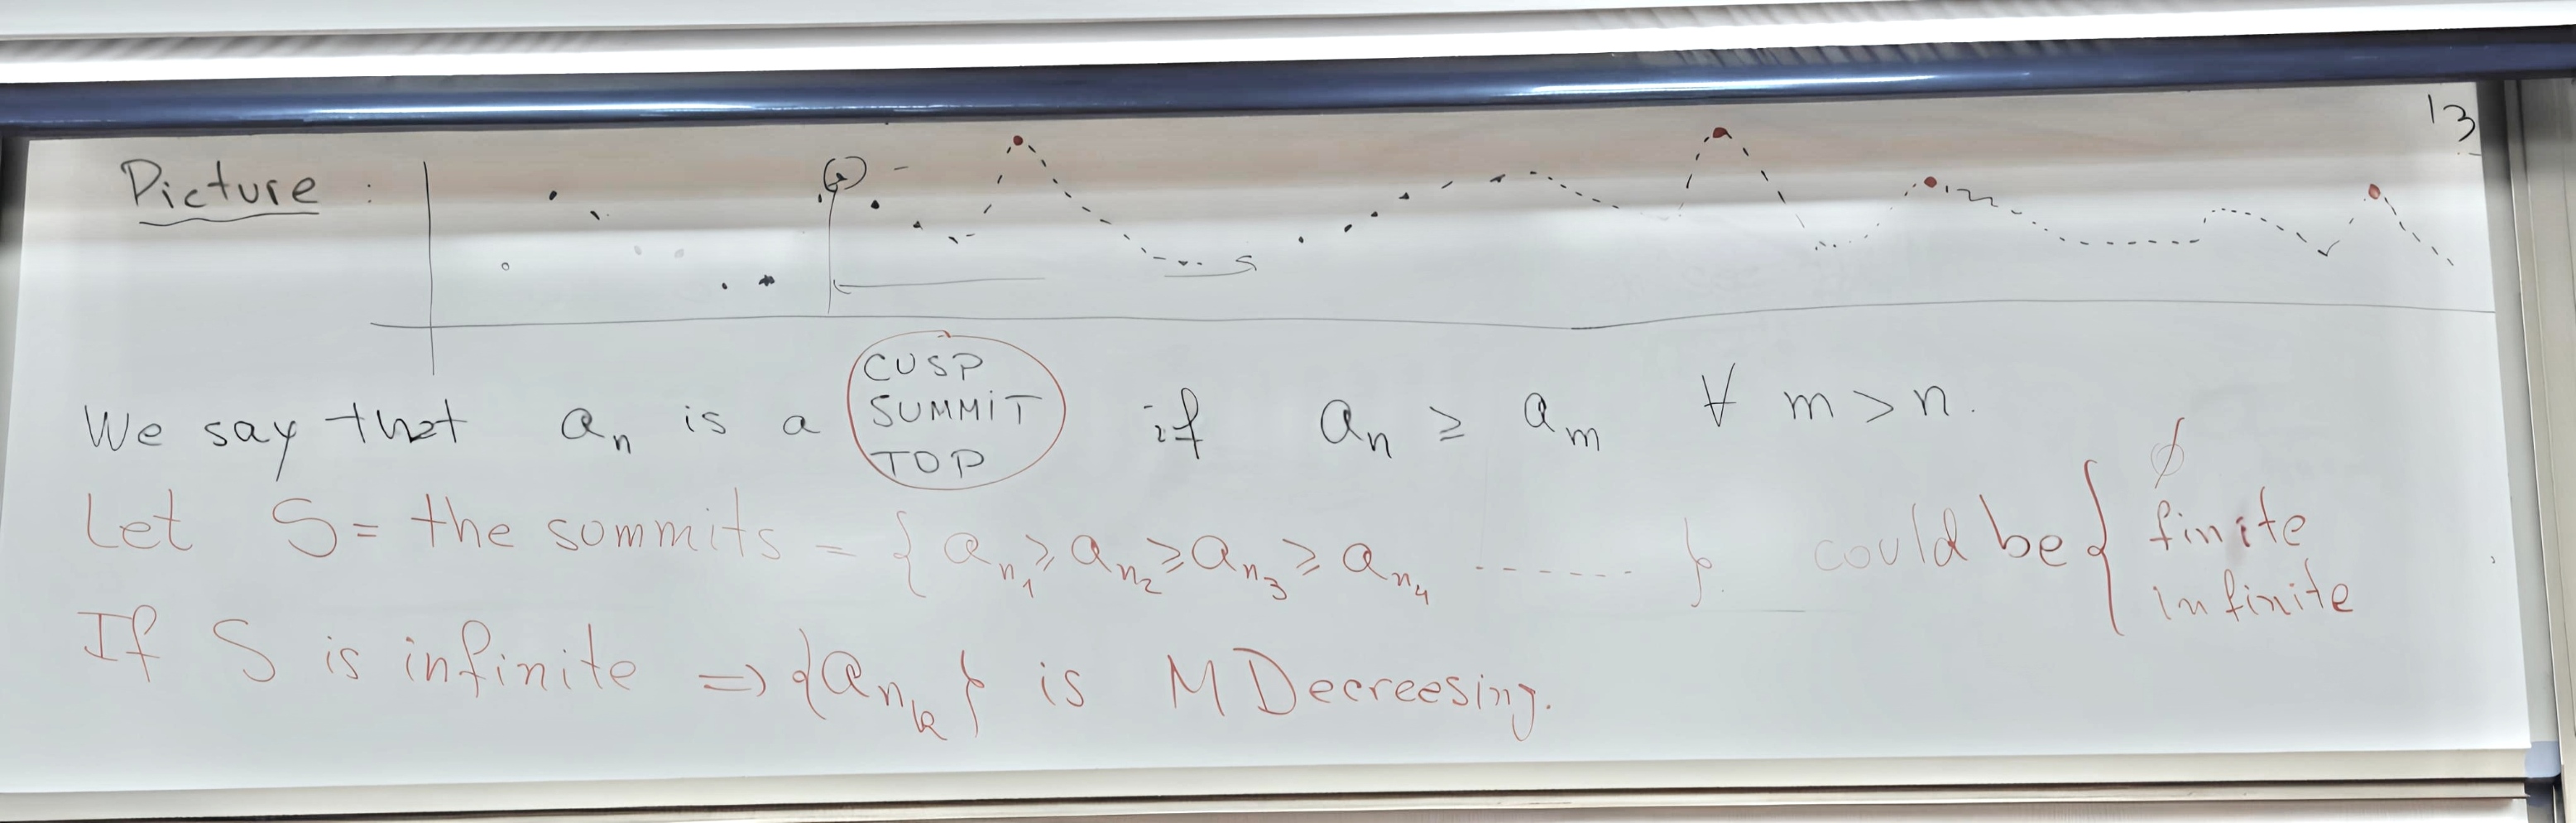 13
Picture :
We say that aₙ is a CUSP SUMMIT TOP if aₙ ≥ aₘ ∀ m > n.
Let S = the sommits = { aₙ₁ ≥ aₙ₂ ≥ aₙ₃ ≥ aₙ₄ ------ }. could be { ∅ finite infinite
If S is infinite ⇒ {aₙₖ} is M Decreesing.